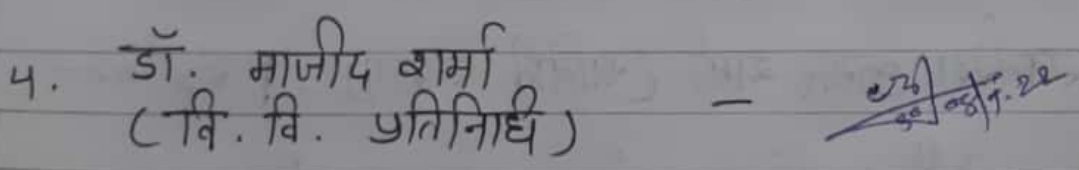 ५. डॉ. माजीद शर्मा
(वि. वि. प्रतिनिधि) -